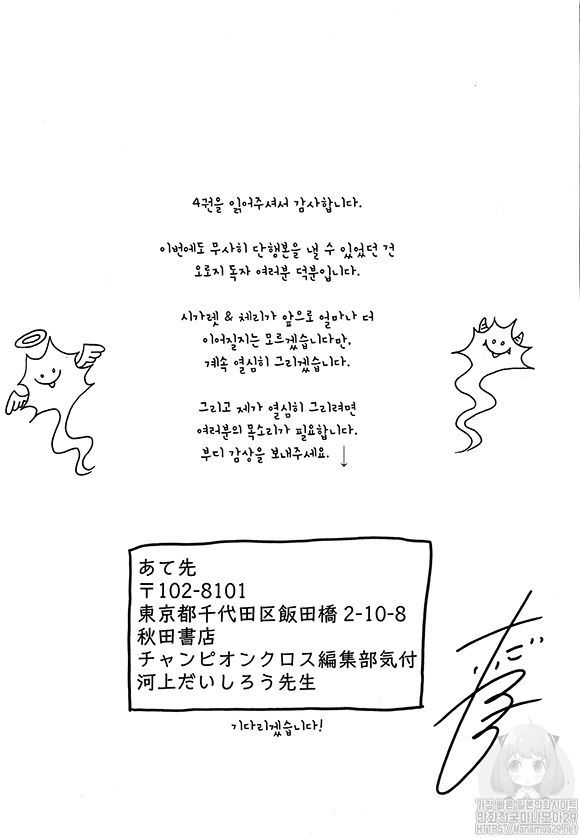 4권을 읽어주셔서 감사합니다.
이번에도 무사히 단행본을 낼 수 있었던 건
오로지 독자 여러분 덕분입니다.
시가렛 & 체리가 앞으로 얼마나 더
이어질지는 모르겠습니다만,
계속 열심히 그리겠습니다.
그리고 제가 열심히 그리려면
여러분의 목소리가 필요합니다.
부디 감상을 보내주세요. ↓
あて先
〒102-8101
東京都千代田区飯田橋 2-10-8
秋田書店
チャンピオンクロス編集部気付
河上だいしろう先生
기다리겠습니다!
가장 빠른 일본만화사이트
만화천국미나모이29
HTTPS://Manamoa29.net